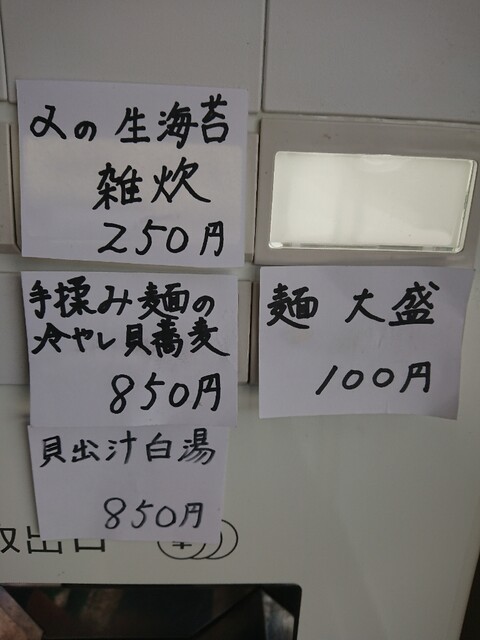 生海苔
雑炊
250円
手揉み麺の
冷やし貝蕎麦
850円
麺 大盛
100円
貝出汁白湯
850円
取出口